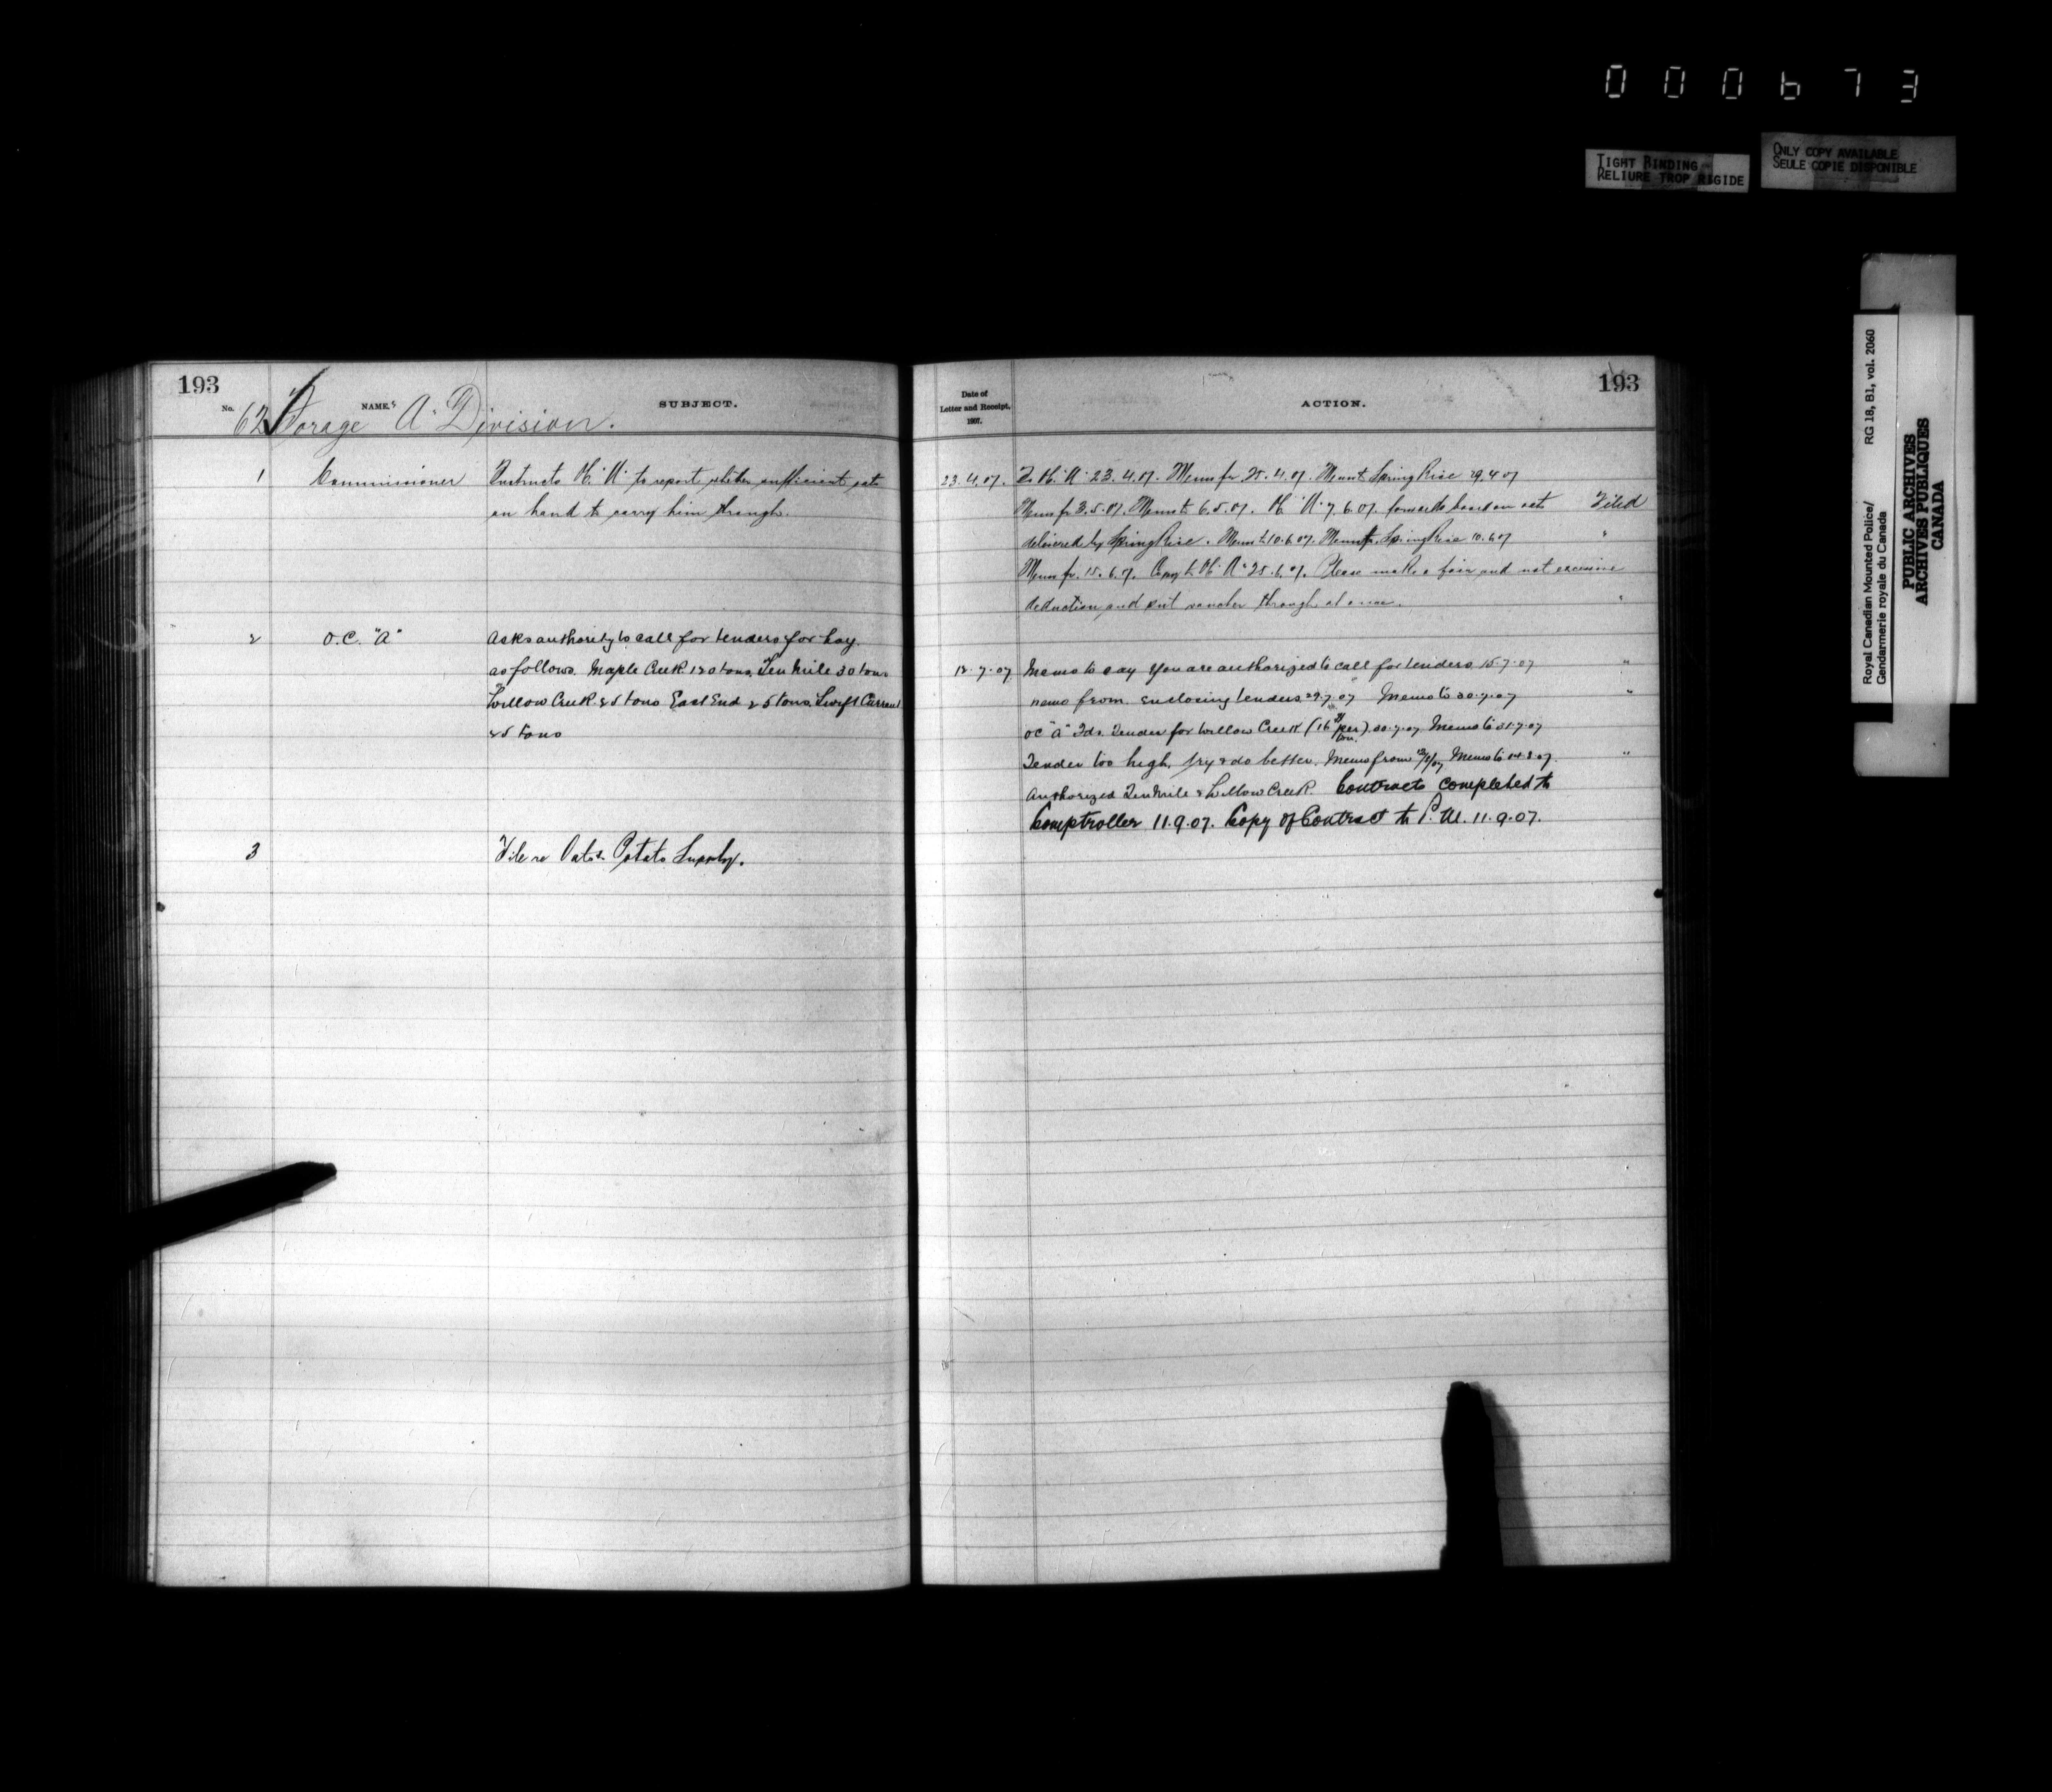 000673
TIGHT BINDING
RELIURE TROP RIGIDE
ONLY COPY AVAILABLE
SEULE COPIE DISPONIBLE
Royal Canadian Mounted Police/
Gendarmerie royale du Canada
RG 18, B1, vol. 2060
PUBLIC ARCHIVES
ARCHIVES PUBLIQUES
CANADA
193
No. NAME. SUBJECT.
62 Forage "A" Division.
1 Commissioner Instructs "A" to report whether sufficient oats
on hand to carry him through.
2 O.C. "A" Asks authority to call for tenders for hay
as follows. Maple Creek 120 tons, Ten Mile 30 tons
Willow Creek 25 tons East End 25 tons, Swift Current
25 tons
3 File re Oats & Potato Supply.
193
Date of
Letter and Receipt,
1907.
ACTION.
23.4.07. To "A" 23.4.07. Memo fr 25.4.07. Memo to Spring Rice 29.4.07
Memo fr 3.5.07. Memo to 6.5.07. "A" 7.6.07. forwards board on oats Filed
delivered by Spring Rice. Memo to 10.6.07. Memo fr. Spring Rice 10.6.07 "
Memo fr. 15.6.07. Copy to "A" 25.6.07. Please make a fair and not excessive
deduction and put voucher through at once. "
12.7.07 Memo to say you are authorized to call for tenders 15.7.07 "
memo from enclosing tenders 29.7.07 Memo to 30.7.07 "
OC "A" Fds. Tender for Willow Creek (16 per ton) 30.7.07 Memo to 31.7.07
Tender too high, try & do better. Memo from Memo to 14.8.07. "
Authorized Ten Mile & Willow Creek Contracts completed to
Comptroller 11.9.07. Copy of Contract to P. M. 11.9.07.